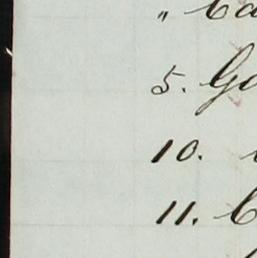 " Ca
5. Go
10.
11. C